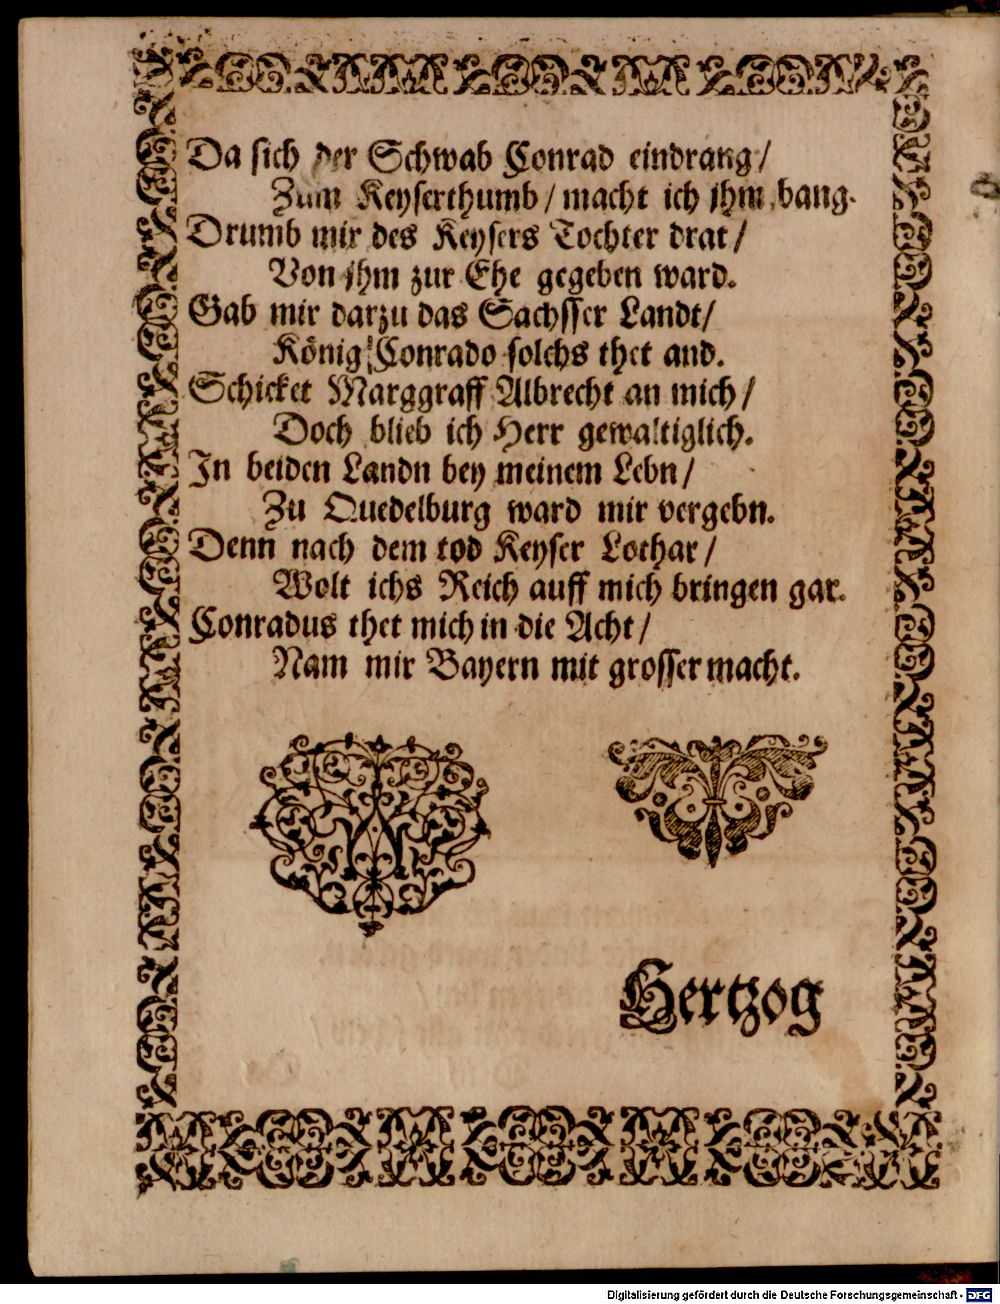 Da sich der Schwab Conrad eindrang/
Zum Keyserthumb/ macht ich jhm bang.
Drumb mir des Keysers Tochter drat/
Von jhm zur Ehe gegeben ward.
Gab mir darzu das Sachsser Landt/
König Conrado solchs thet and.
Schicket Marggraff Albrecht an mich/
Doch blieb ich Herr gewaltiglich.
In beiden Landn bey meinem Lebn/
Zu Quedelburg ward mir vergebn.
Denn nach dem tod Keyser Lothar/
Wolt ichs Reich auff mich bringen gar.
Conradus thet mich in die Acht/
Nam mir Bayern mit grosser macht.
Hertzog
Digitalisierung gefördert durch die Deutsche Forschungsgemeinschaft - DFG